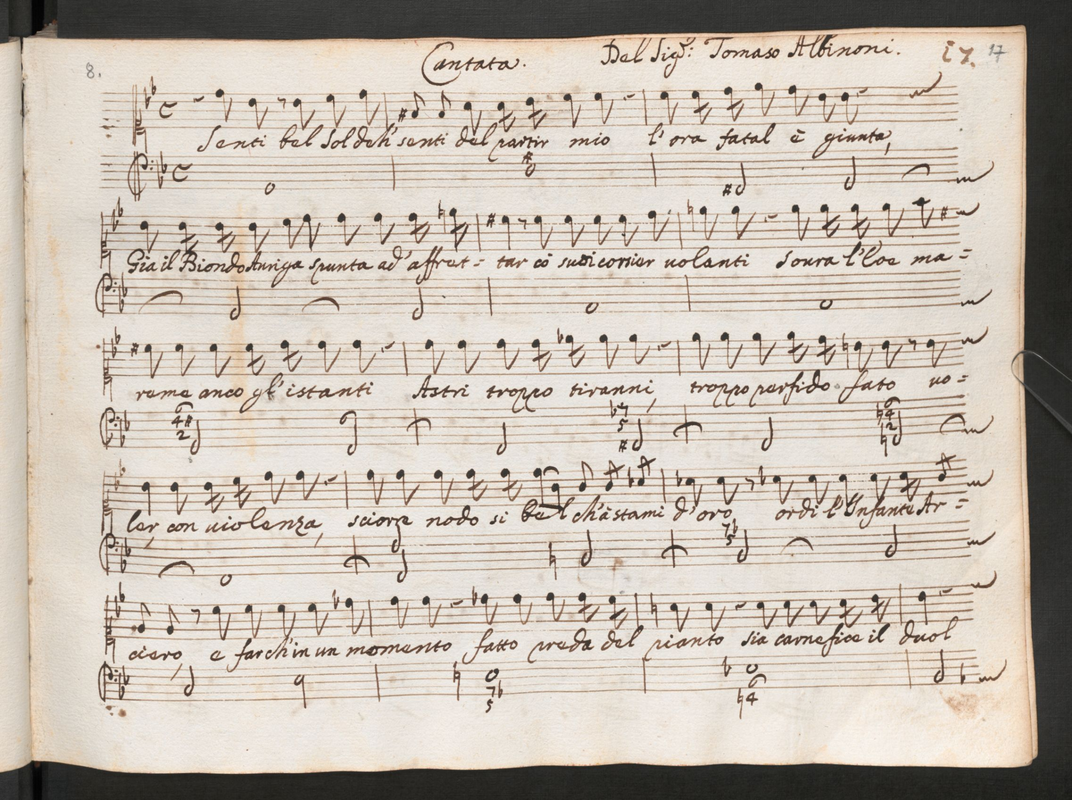 8.
Cantata. Del Sigr: Tomaso Albinoni. 17. 17
Senti bel Sol deh' senti del partir mio l'ora fatal è giunta,
Gia il Biondo Auriga spunta ad' affret= tar co suoi corsier volanti Soura l'Eoe ma=
reme anco gl' istanti Astri troppo tiranni, troppo perfido fato uo=
4# 2 b7 5 # 4 2
ler, con violenza, sciorre nodo si bel ch'à stami d'oro ordi l'Infante Ar=
7b 5
ciero, e far ch'in un momento fatto preda del pianto sia carnefice il duol
7b 5 4